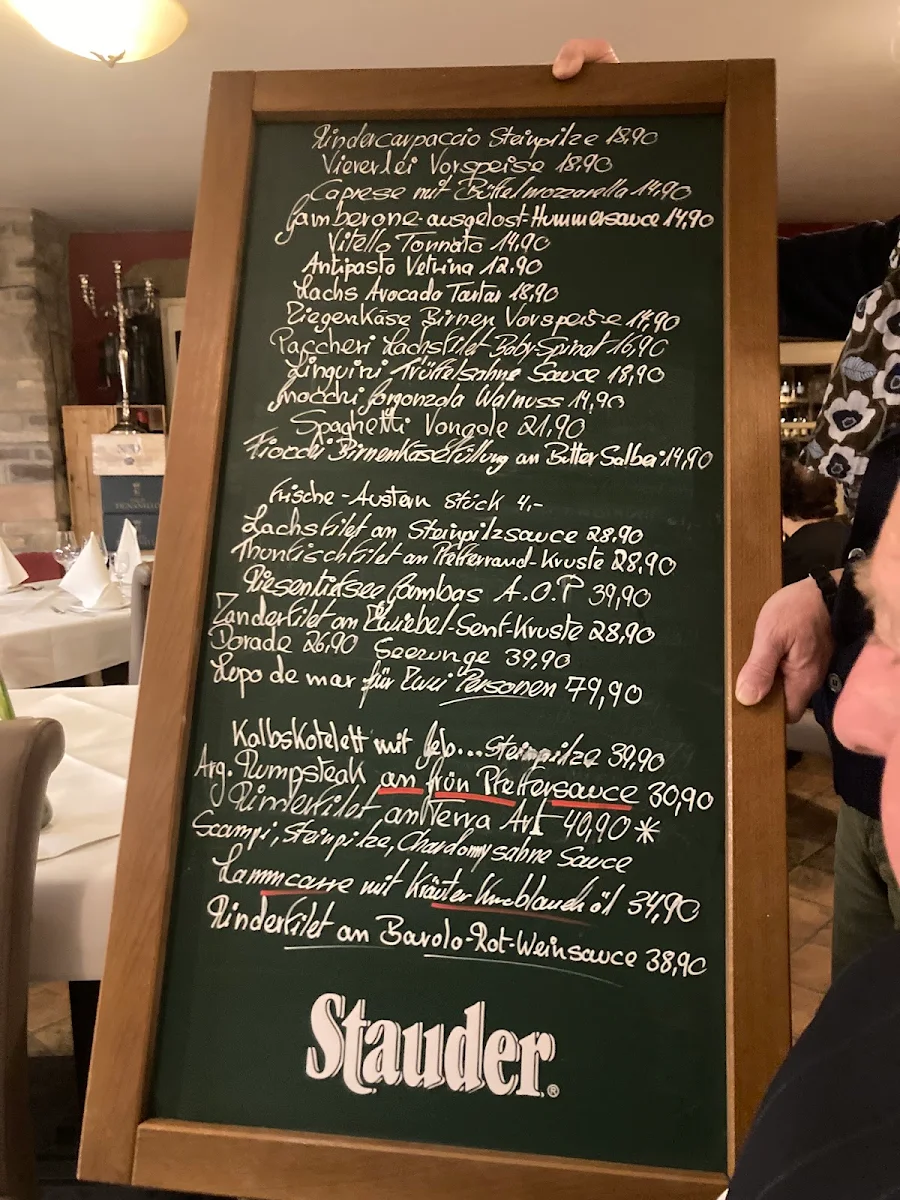 Rindercarpaccio Steinpilze 18,90
Viererlei Vorspeise 18,90
Caprese mit Büffelmozzarella 14,90
Gamberone-ausgelöst-Hummersauce 14,90
Vitello Tonnato 14,90
Antipasto Vetrina 12.90
Lachs Avocado Tartar 18,90
Ziegenkäse Birnen Vorspeise 14,90
Paccheri Lachsfilet Baby-Spinat 16,90
Linguini Trüffelsahne Sauce 18,90
Gnocchi Gorgonzola Walnuss 14,90
Spaghetti Vongole 21,90
Fiocchi Birnenkäsefüllung an Butter Salbei 14,90
Frische-Austern Stück 4,-
Lachsfilet an Steinpilzsauce 28.90
Thunfischfilet an Pfefferrand-Kruste 28,90
Riesentiefsee Gambas A.O.P 39,90
Zanderfilet an Zwiebel-Senf-Kruste 28,90
Dorade 26,90 Seezunge 39,90
Lupo de mar für Zwei Personen 79,90
Kalbskotelett mit Geb... Steinpilze 39,90
Arg. Rumpsteak an Grün Pfeffersauce 30,90
Rinderfilet, an Terra Art 40,90 *
Scampi, Steinpilze, Chardonny sahne Sauce
Lammcarre mit Kräuter Knoblauch öl 34,90
Rinderfilet an Barolo-Rot-Weinsauce 38,90
Stauder®